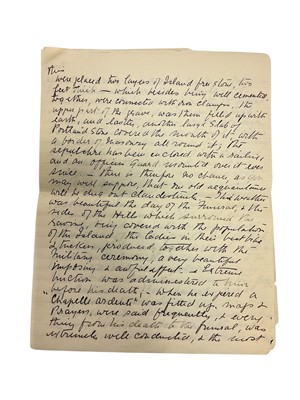 This
were placed two layers of Island free stone, two
feet thick – which besides being well cemented
together, were connected with iron clamps. The
upper part of the grave, was then filled up with
earth, and lastly, another large Slab of
Portland Stone covered the mouth of it with
a border of masonry all round it; The
sepulchre has been enclosed with a railing,
and an officers Guard mounted over it ever
since – there is therefore no chance, as
may well suppose, that our old acquaintance
will to slip out clandestinely – The weather
was beautiful the day of the Funeral, & the
sides of the Hills which surround the
ravine, being covered with the population
of the Island, the ladies in their best bibs
& tuckers, produced, together with the
military ceremony, a very beautiful
imposing & awful effect. & Extreme
Unction was administered to him
before his death; – When he expired a
"Chapelle ardente" was fitted up, mass &
Prayers, were said frequently, & every
thing from his death to the funeral, was
extremely well conducted, & the most